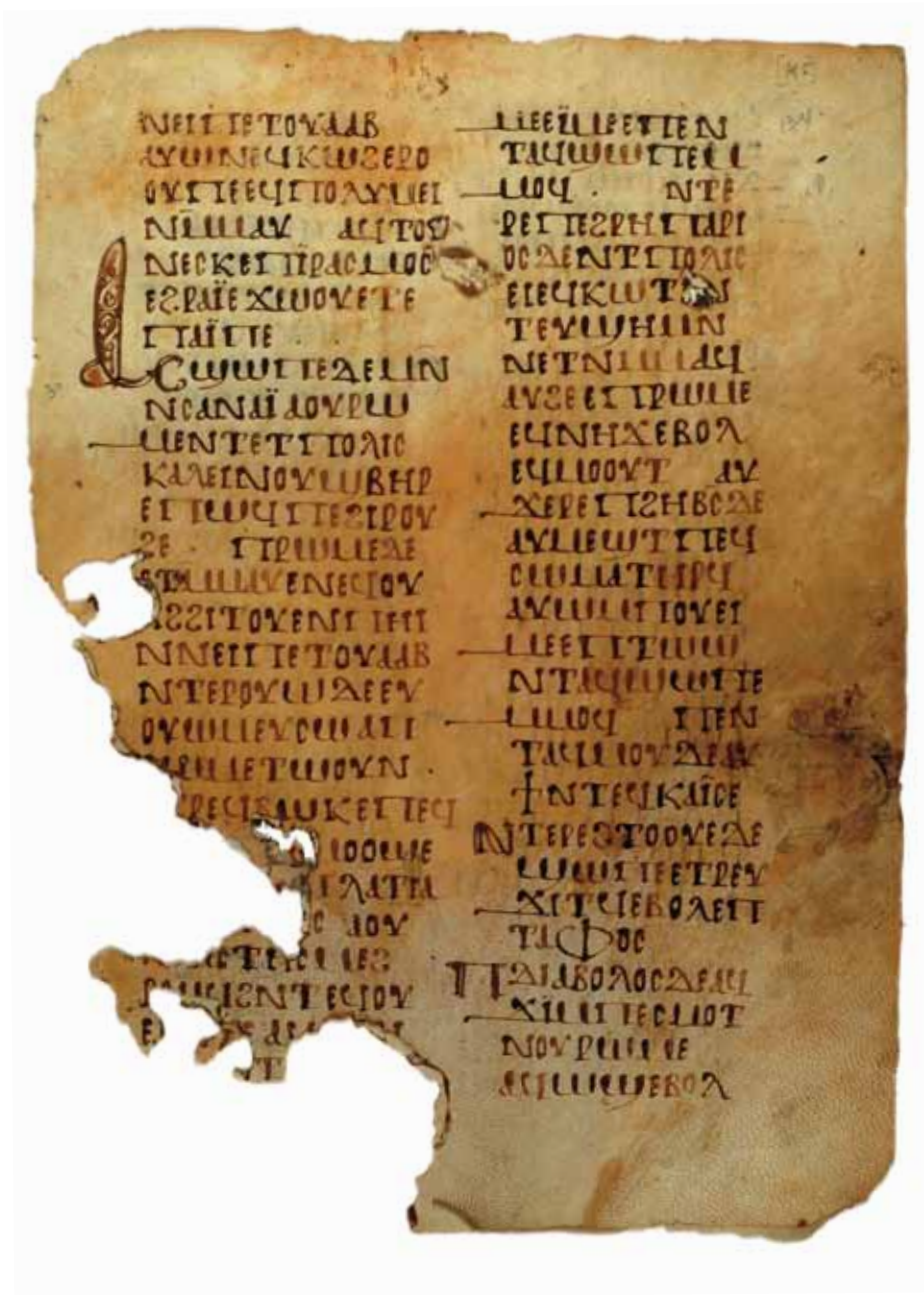 ⲛⲉⲓⲡⲉⲧⲟⲩⲁⲁⲃ
ⲁⲩⲱⲛⲉϥⲕⲱϩⲉⲣⲟ
ⲟⲩⲡⲉⲉϥⲡⲟⲗⲩⲙⲉⲓ
ⲛⲙ̄ⲙⲁⲩ ⲁϥⲧⲟⲩ
ⲛⲉⲥⲕⲉⲡⲓⲣⲁⲥⲙⲟⲥ
ⲉϩⲣⲁⲓ̈ⲉϫⲱⲟⲩⲉⲧⲉ
ⲡⲁⲓ̈ⲡⲉ
ⲁⲥϣⲱⲡⲉⲇⲉⲙⲛ
ⲛⲥⲁⲛⲁⲓ̈ⲁⲟⲩⲣⲱ
ⲙⲉⲛⲧⲉⲧⲡⲟⲗⲓⲥ
ⲕⲁⲗⲉⲓⲛⲟⲩϣⲃⲏⲣ
ⲉⲡⲱϥⲡⲉϩⲓⲣⲟⲩ
ϩⲉ ⲡⲣⲱⲙⲉⲇⲉ
ⲉⲧⲙⲙⲁⲩⲉⲛⲉϥⲟⲩ
ⲁϩϩⲓⲧⲟⲩⲉⲛⲡⲏⲓ
ⲛⲛⲉⲓⲡⲉⲧⲟⲩⲁⲁⲃ
ⲛⲧⲉⲣⲟⲩⲱⲇⲉⲉⲩ
ⲟⲩⲱⲙⲉⲩⲥⲱⲁϥ
ⲣⲙⲉⲧⲱⲟⲩⲛ ·
ⲣⲉϥⲃⲱⲕⲉⲡⲉϥ
ⲙⲟⲟϣⲉ
ⲡⲗⲁⲧⲓⲁ
ⲥ ⲙⲟⲩ
ⲙⲉϩ
ⲣⲱϥϩⲛⲧⲉϥⲟⲩ
ⲙⲉⲉⲓ̈ⲙⲉⲉⲡⲉⲛ
ⲧⲁϥϣⲱⲡⲉⲙ
ⲙⲟϥ · ⲛⲧⲉ
ⲣⲉⲡⲉϩⲣⲏⲡⲁⲣⲓ
ⲟⲥⲇⲉⲛⲧⲡⲟⲗⲓⲥ
ⲉⲓⲉϥⲕⲱⲧⲉⲛ
ⲧⲉⲩϣⲏⲙⲛ
ⲛⲉⲧⲛⲙⲙⲁϥ
ⲁⲩϩⲉⲉⲡⲣⲱⲙⲉ
ⲉϥⲛⲏϫⲉⲃⲟⲗ
ⲉϥⲙⲟⲟⲩⲧ ⲁⲩ
ϫⲉⲣⲉⲡϩⲏⲃⲥⲇⲉ
ⲁⲩⲙⲉϣⲧⲡⲉϥ
ⲥⲱⲙⲁⲧⲏⲣϥ
ⲁⲩⲱⲙⲡⲟⲩⲉⲓ
ⲙⲉⲉⲡⲧⲱϣ
ⲛⲧⲁϥϣⲱⲡⲉ
ⲙⲙⲟϥ ⲡⲉⲛ
ⲧⲁϥⲙⲟⲩⲇⲉⲁⲩ
ϯⲛⲧⲉϥⲕⲁⲓ̈ⲥⲉ
ⲛⲧⲉⲣⲉϩⲧⲟⲟⲩⲉⲇⲉ
ϣⲱⲡⲉⲉⲧⲣⲉⲩ
ϫⲓⲧϥⲉⲃⲟⲗⲉⲡ
ⲧⲁⲫⲟⲥ
ⲡⲇⲓⲁⲃⲟⲗⲟⲥⲇⲉⲁϥ
ϫⲓⲙⲡⲉⲥⲙⲟⲧ
ⲛⲟⲩⲣⲱⲙⲉ
ⲁϥⲱϣⲉⲃⲟⲗ